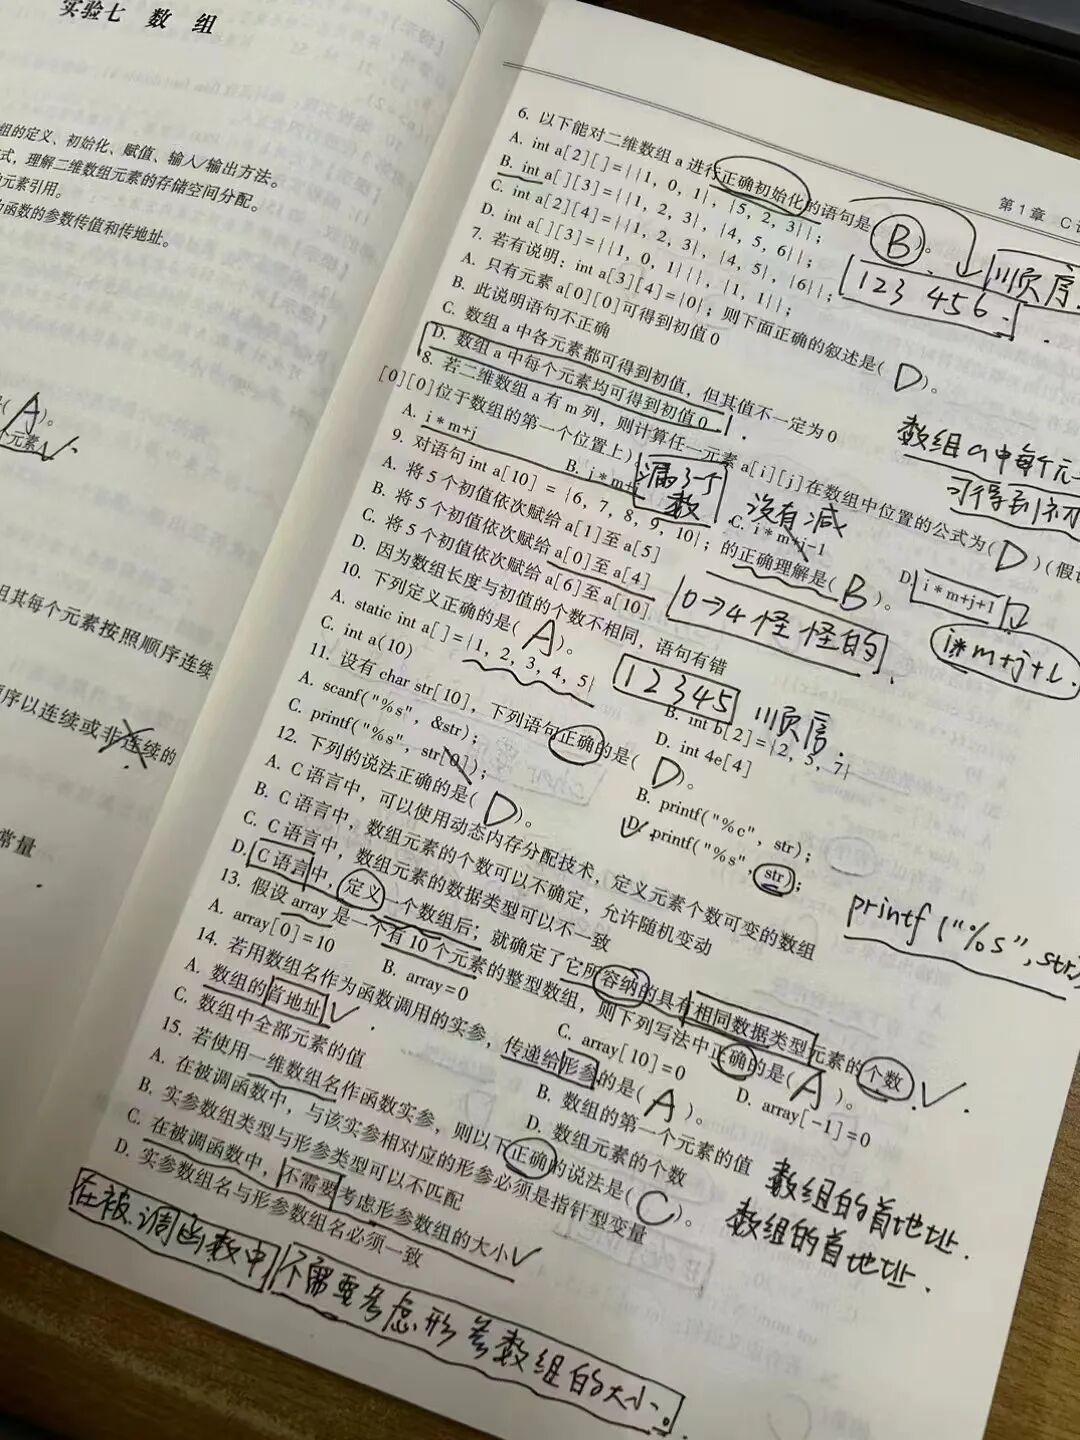 实验七 数 组
组的定义、初始化、赋值、输入/输出方法。
式，理解二维数组元素的存储空间分配。
元素引用。
函数的参数传值和传地址。
(A)。
个元素
组其每个元素按照顺序连续
顺序以连续或非连续的
常量
第1章 C
6. 以下能对二维数组 a 进行正确初始化的语句是(B)。
A. int a[2][]={{1, 0, 1}, {5, 2, 3}};
B. int a[][3]={{1, 2, 3}, {4, 5, 6}};
C. int a[2][4]={{1, 2, 3}, {4, 5}, {6}};
D. int a[][3]={{1, 0, 1}{}, {1, 1}};
123 456.
顺序.
7. 若有说明：int a[3][4]={0}；则下面正确的叙述是(D)。
A. 只有元素 a[0][0]可得到初值 0
B. 此说明语句不正确
C. 数组 a 中各元素都可得到初值，但其值不一定为 0
D. 数组 a 中每个元素均可得到初值 0
数组a中每个元
可得到初
8. 若二维数组 a 有 m 列，则计算任一元素 a[i][j]在数组中位置的公式为(D)(假
[0][0]位于数组的第一个位置上)
A. i*m+j
B. j*m+
漏了一个数
没有减
C. i*m+j-1
D. i*m+j+1
i*m+j+1.
9. 对语句 int a[10] = {6, 7, 8, 9, 10}；的正确理解是(B)。
A. 将 5 个初值依次赋给 a[1]至 a[5]
B. 将 5 个初值依次赋给 a[0]至 a[4]
C. 将 5 个初值依次赋给 a[6]至 a[10]
D. 因为数组长度与初值的个数不相同，语句有错
0→4 怪怪的.
10. 下列定义正确的是(A)。
A. static int a[]={1, 2, 3, 4, 5}
B. int b[2]={2, 5, 7}
C. int a(10)
D. int 4e[4]
12345
11. 设有 char str[10]，下列语句正确的是(D)。
A. scanf("%s", &str);
B. printf("%c", str);
C. printf("%s", str[0]);
D. printf("%s", str);
printf("%s", str)
12. 下列的说法正确的是(D)。
A. C 语言中，可以使用动态内存分配技术，定义元素个数可变的数组
B. C 语言中，数组元素的个数可以不确定，允许随机变动
C. C 语言中，数组元素的数据类型可以不一致
D. C 语言中，定义一个数组后，就确定了它所容纳的具有相同数据类型元素的个数
13. 假设 array 是一个有 10 个元素的整型数组，则下列写法中正确的是(A)。
A. array[0]=10
B. array=0
C. array[10]=0
D. array[-1]=0
14. 若用数组名作为函数调用的实参，传递给形参的是(A)。
A. 数组的首地址
B. 数组的第一个元素的值
C. 数组中全部元素的值
D. 数组元素的个数
数组的首地址.
数组的首地址.
15. 若使用一维数组名作函数实参，则以下正确的说法是(C)。
A. 在被调函数中，与该实参相对应的形参必须是指针型变量
B. 实参数组类型与形参类型可以不匹配
C. 在被调函数中，不需要考虑形参数组的大小
D. 实参数组名与形参数组名必须一致
在被调函数中不需要考虑形参数组的大小。